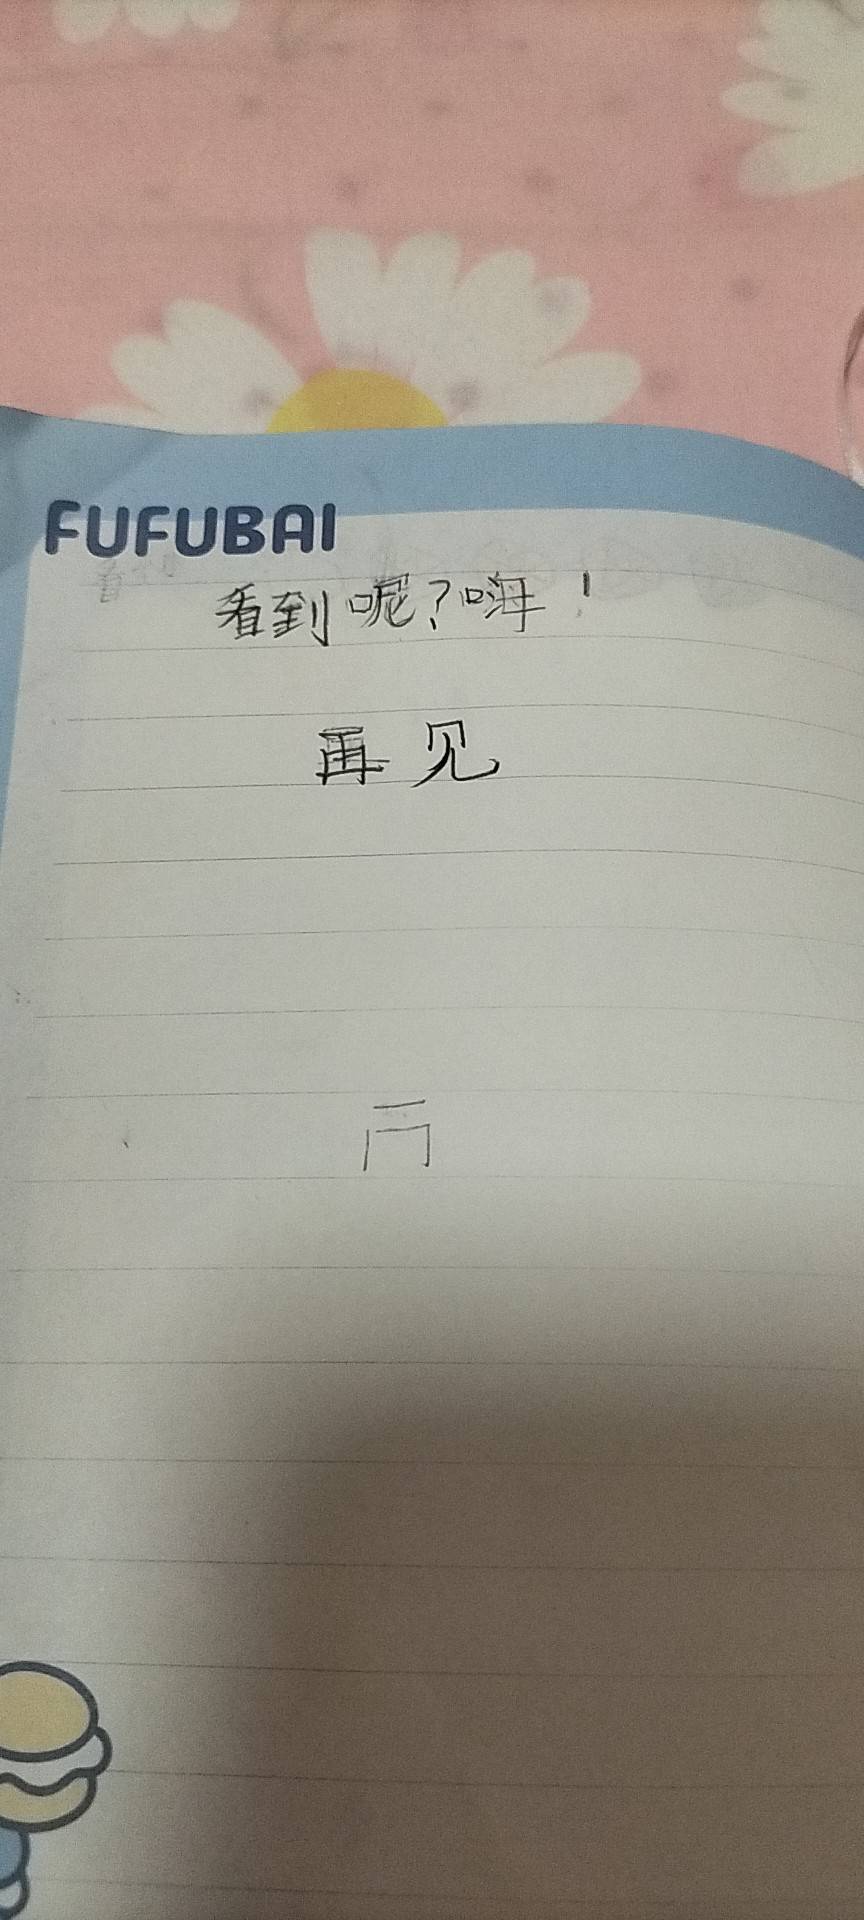 FUFUBAI
看到呢？嗨！
再见